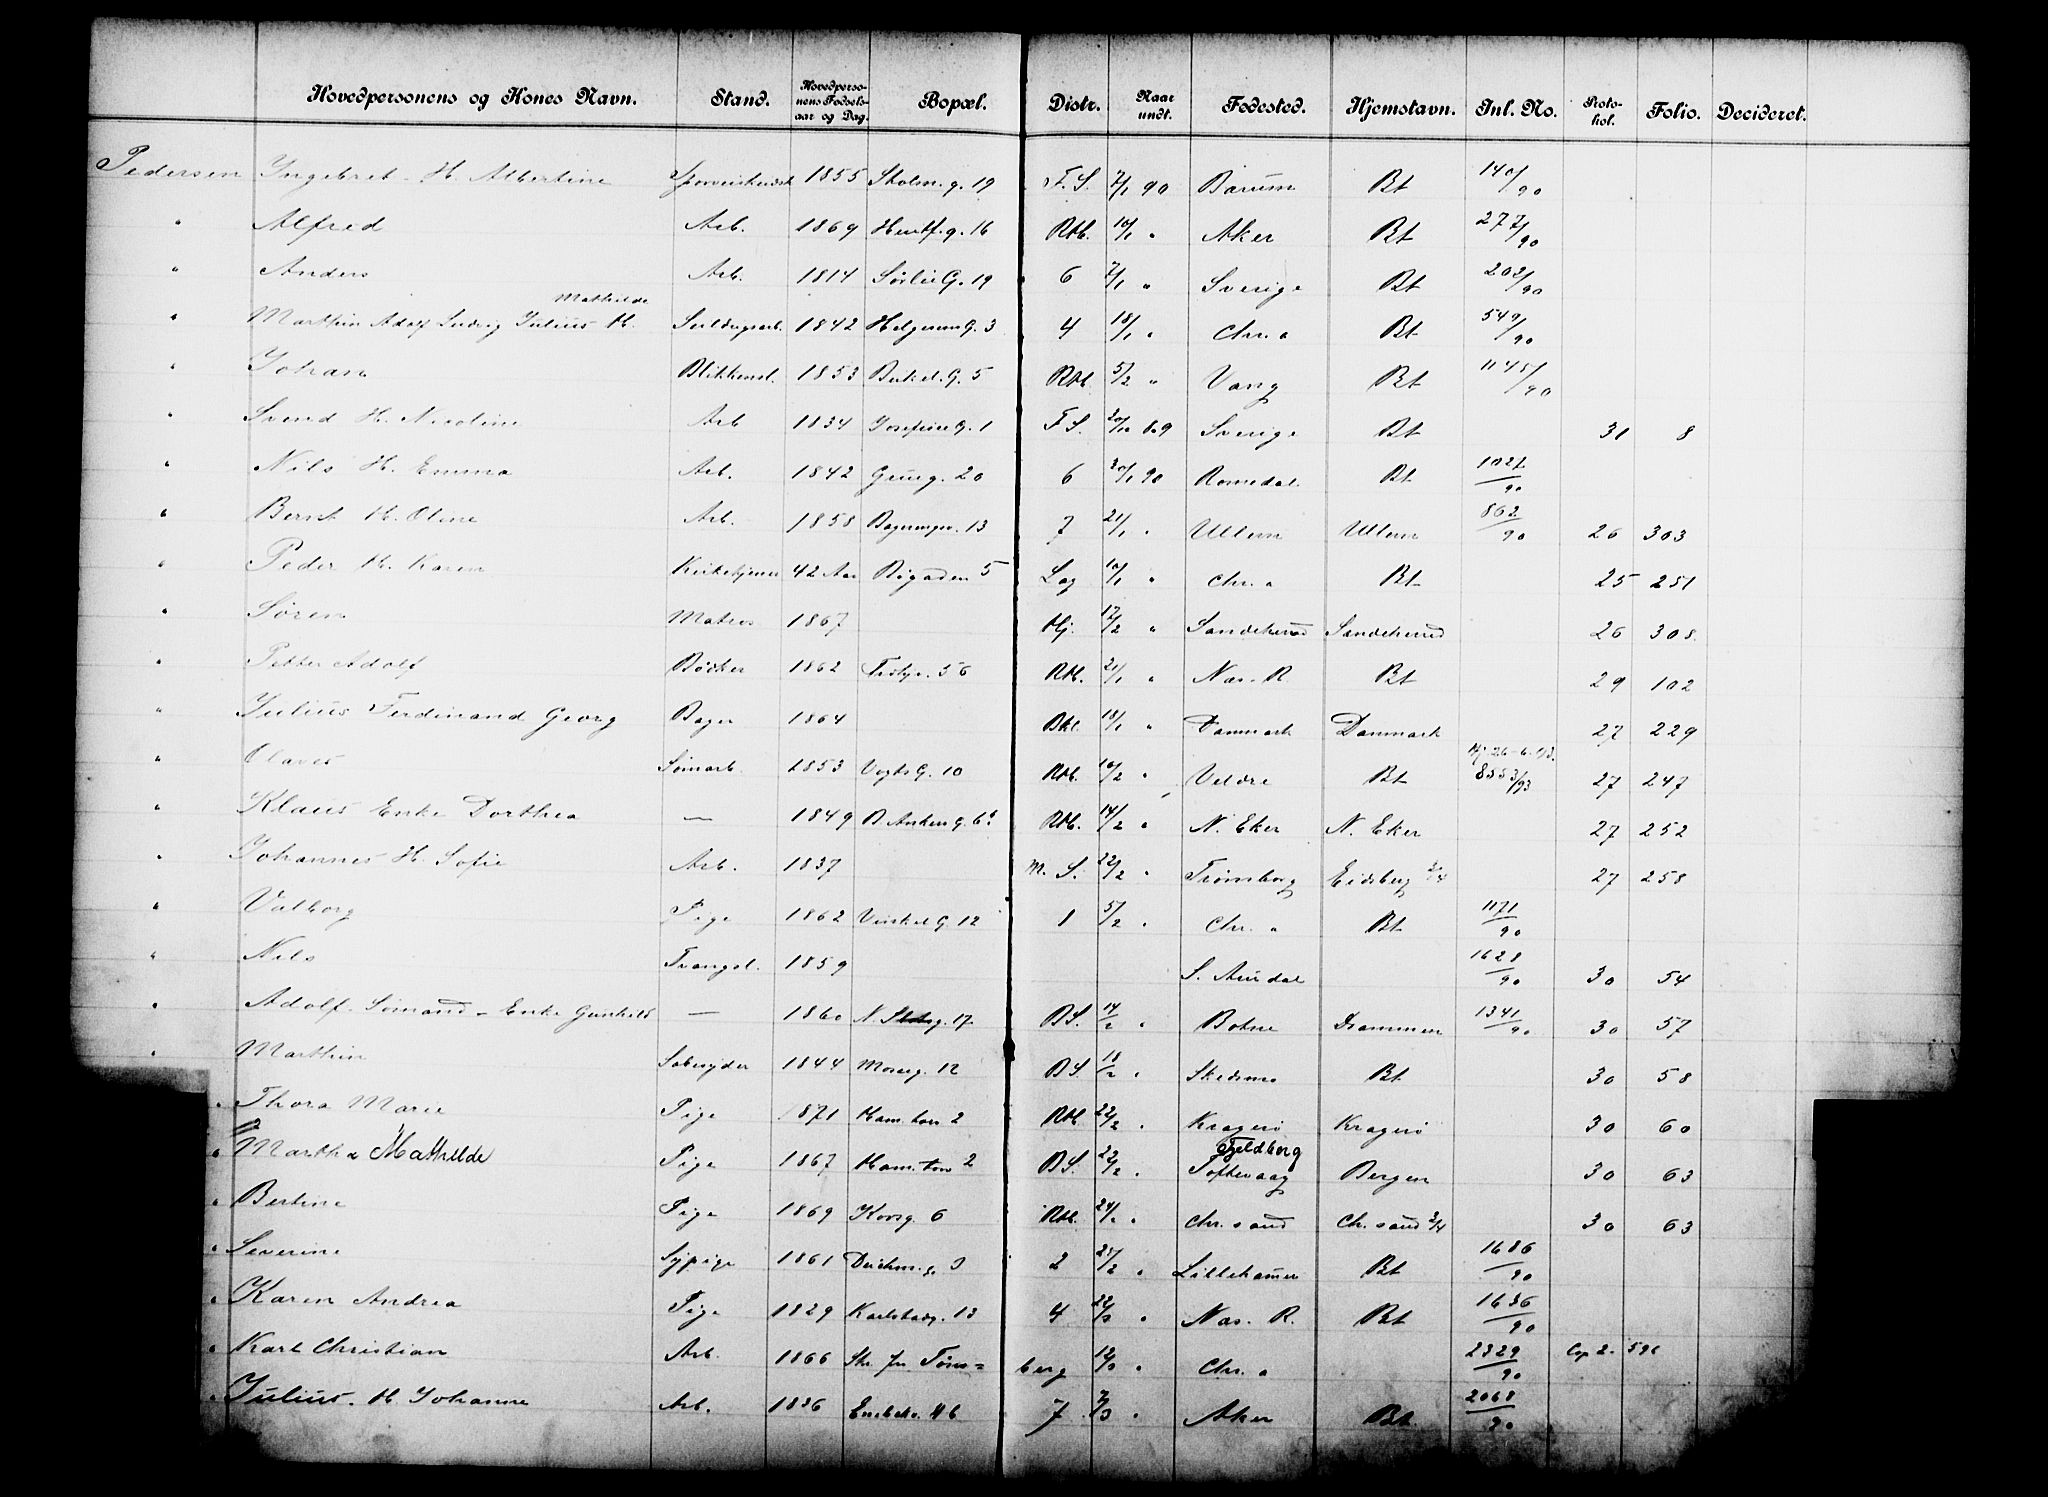 Hovedpersonens og Kones Navn. Stand. Hovedperso-nens Fødsels-aar og Dag. Bopæl. Distr. Naar undt. Fødested. Hjemstavn. Inl. No. Proto-kol. Folio. Decideret.
Pedersen Ingebret - H. Albertine 1855 Holm. g. 19 F. S. 7/1 90 Bærum Bt 140/90
" Alfred Arb. 1869 g. 16 Rbl. 10/1 " Aker Bt 277/90
" Anders Arb. 1814 Sørlie G. 19 6 7/1 " Sverige Bt 202/90
Mathilde
" Marthin Adolf Ludvig Julius H. 1842 Helgesens G. 3 4 18/1 " Chr. a Bt 549/90
" Johan Blikkensl. 1853 Birkel. G. 5 Rbl. 5/2 " Vang Bt 1145/90
" Svend H. Nicoline Arb 1834 Josefine G. 1 F S. 89 Sverige Bt 31 8
" Nils H. Emma Arb. 1842 20 6 20/1 90 Romedal Bt 1027/90
" Bernt H. Oline Arb. 1858 13 7 21/1 " Ullern Ullern 862/90 26 303
" Peder H. Karen Kirketjener 42 Aar Bøgaden 5 Lag 10/1 " Chr. a Bt 25 251
" Søren Matros 1867 Hj. 17/2 " Sandeherred Sandeherred 26 308.
" Petter Adolf Bødker 1862 56 Rbl. 21/1 " Næs. R. Bt 29 102
" Julius Ferdinand Georg Bager 1864 18/1 " Danmark Danmark 27 229
" Olaves Sømarb. 1853 Vogts G. 10 Rbl. 10/2 " Veldre Bt Hj. 26-6-93. 8553/93 27 247
" Klaus Enke Dorthea — 1849 B. Ankers g. 6 Rbl. 14/2 " N. Eker N. Eker 27 252
" Johannes H. Sofie Arb. 1837 M. S. 22/2 " Trømborg Eidsberg 27 258
" Valborg Pige 1862 G. 12 1 5/2 " Chr. a Bt 1171/90
" Nils Tvangsl. 1859 S. Aurdal 1628/90 30 54
" Adolf. Sømand - Enke Gunhild — 1860 17 B S. 14/2 " Botne Drammen 1341/90 30 57
" Marthin Sæbesyder 1844 Moseg. 12 B S. 18/2 " Skedsmo Bt 30 58
" Thora Marie Pige 1871 2 Rbl. 22/2 " Kragerø Kragerø 30 60
Fjeldberg
" Martha Mathilde Pige 1867 2 B S. 22/2 " Toftevaag Bergen 30 63
" Bertine Pige 1869 Korsg. 6 Rbl. 24/2 " Chr. sand Ch. sand 3/4 30 63
" Severine Sypige 1861 Deichm. g. 2 25/2 " Lillehamer Bt 1686/90
" Karen Andrea Pige 1829 Karlstadg. 13 4 22/3 " Næs. R. Bt 1636/90
" Karl Christian Arb. 1866 Skr. fra Tøns=berg 12/3 " Chr. a 2329/90 Cop 2.
" Julius. H Johanne Arb. 1836 7 7/3 " Aker Bt 2068/90